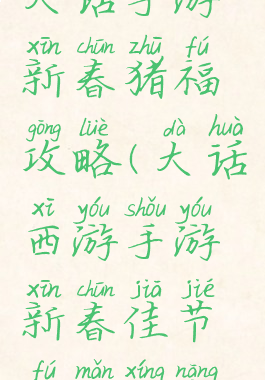 大话手游
xīn chūn zhū fú
新春猪福
gōng lüè dà huà
攻略(大话
xī yóu shǒu yóu
西游手游
xīn chūn jiā jié
新春佳节
fú mǎn xíng nāng